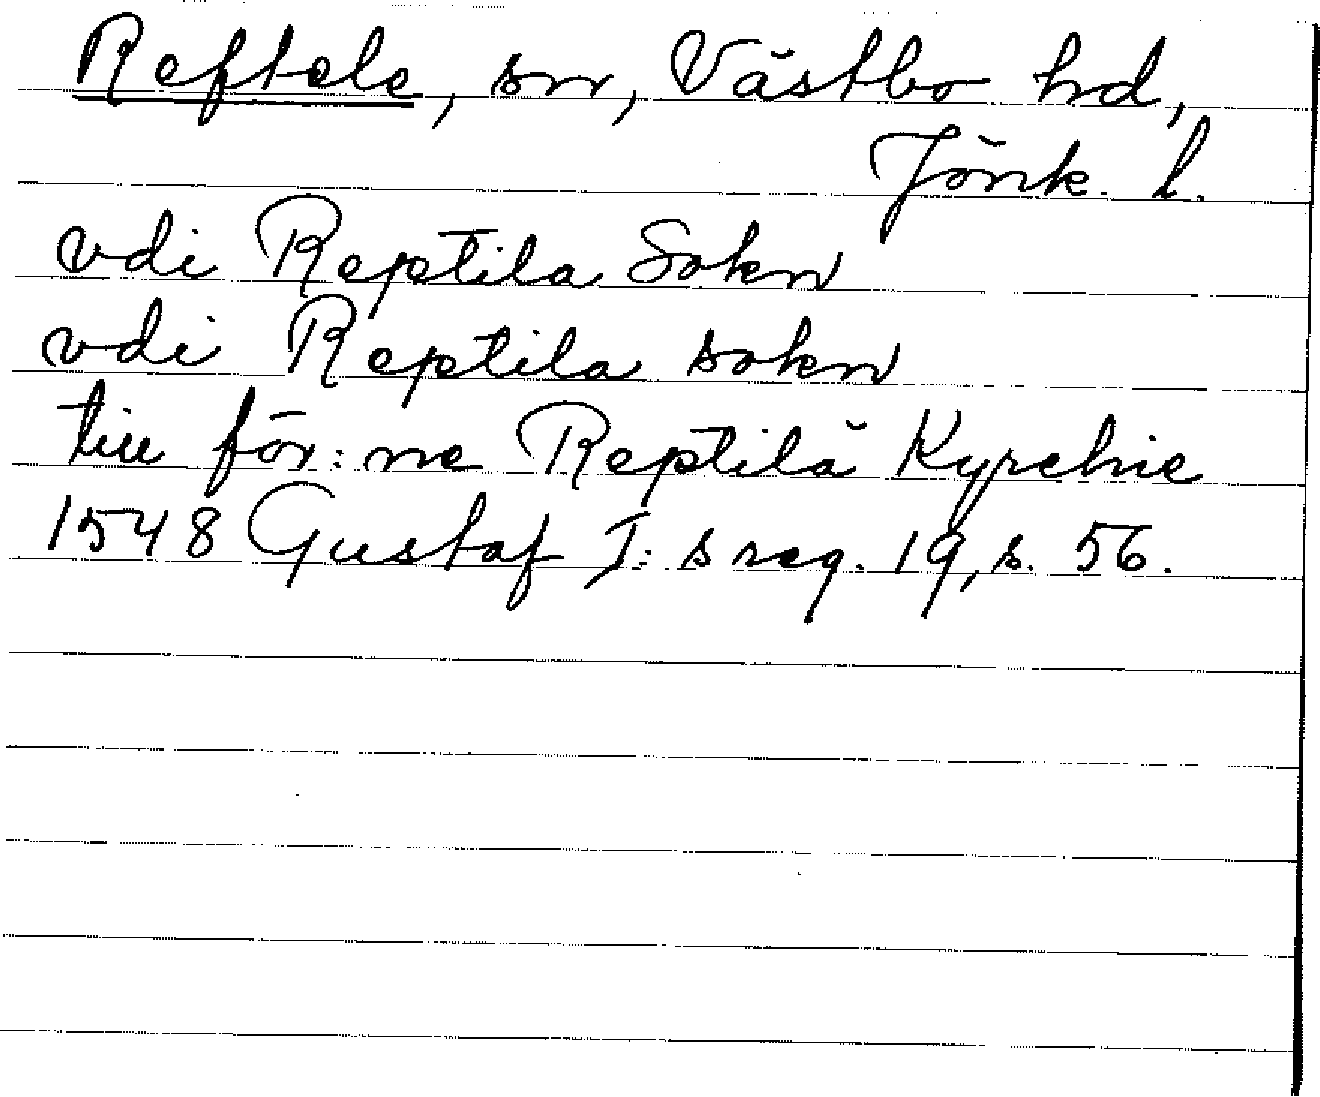 Reftele, sn, Västbo hd,
Jönk. l.
vdi Reptila Sokn
vdi Reptila sokn
till för:ne Reptilä Kyrchie
1548 Gustaf I:s reg. 19, s. 56.